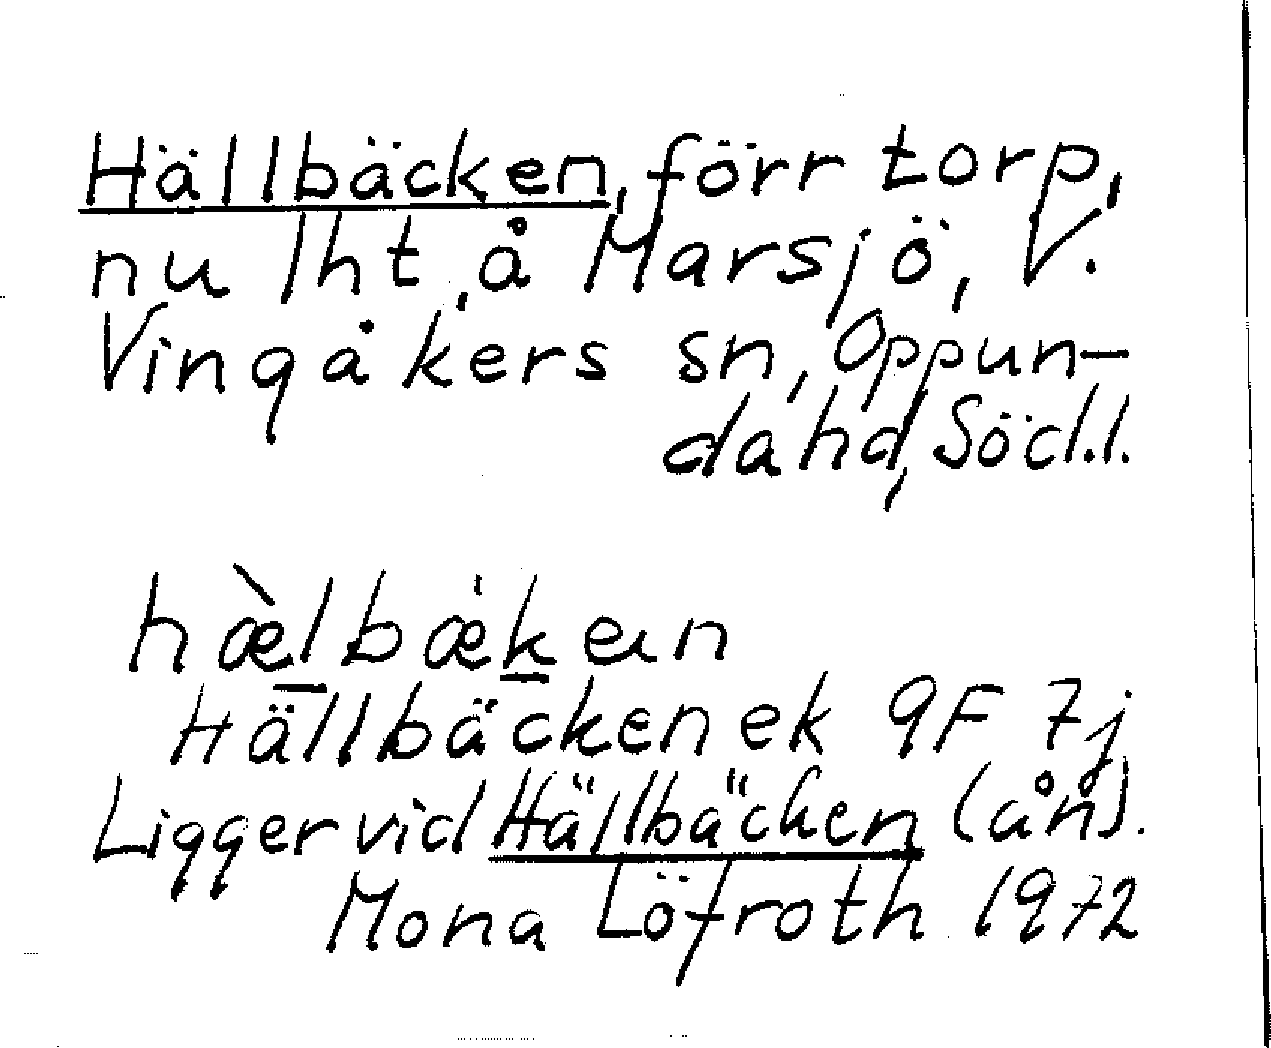 Hällbäcken, förr torp,
nu lht, å Marsjö, V.
Vingåkers sn, Oppun-
da hd, Söd.l.
hæ̀lbæ̍kən
Hällbäcken ek 9F 7j
Ligger vid Hällbäcken (ån).
Mona Löfroth 1972